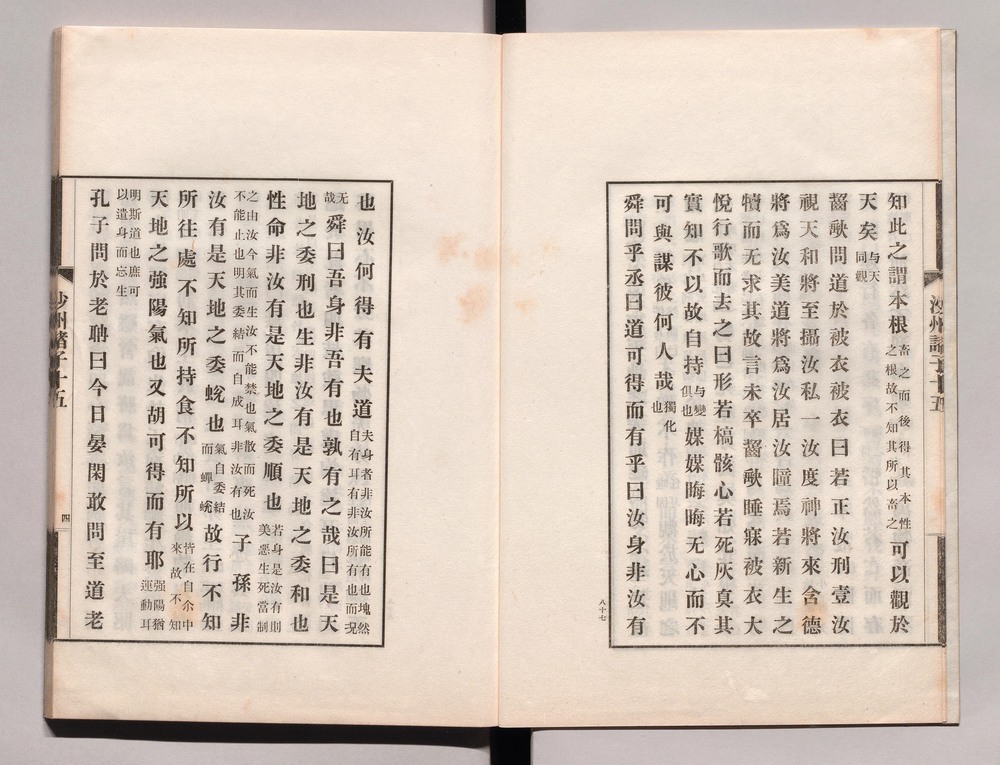 知此之謂本根畜之而後得其本性之根故不知其所以畜之可以觀於
天矣与天同觀
齧歃問道於被衣被衣曰若正汝刑壹汝
視天和將至攝汝私一汝度神將來含德
將爲汝美道將爲汝居汝瞳焉若新生之
犢而无求其故言未卒齧歃睡寐被衣大
悅行歌而去之曰形若槁骸心若死灰真其
實知不以故自持与變俱也媒媒晦晦无心而不
可與謀彼何人哉獨化也
舜問乎丞曰道可得而有乎曰汝身非汝有
八十七
沙州諸子十五
也汝何得有夫道夫身者非汝所能有也塊然自有耳有非汝所有也而況
无哉舜曰吾身非吾有也孰有之哉曰是天
地之委刑也生非汝有是天地之委和也
性命非汝有是天地之委順也若身是汝有則美惡生死當制
之由汝今氣而生汝不能禁也氣散而死汝不能止也明其委結而自成耳非汝有也子孫非
汝有是天地之委蛻也氣自委結而蟬蛻故行不知
所往處不知所持食不知所以皆在自尒中來故不知
天地之強陽氣也又胡可得而有耶強陽猶運動耳
明斯道也庶可以遣身而忘生
孔子問於老聃曰今日晏閑敢問至道老
沙州諸子十五
四